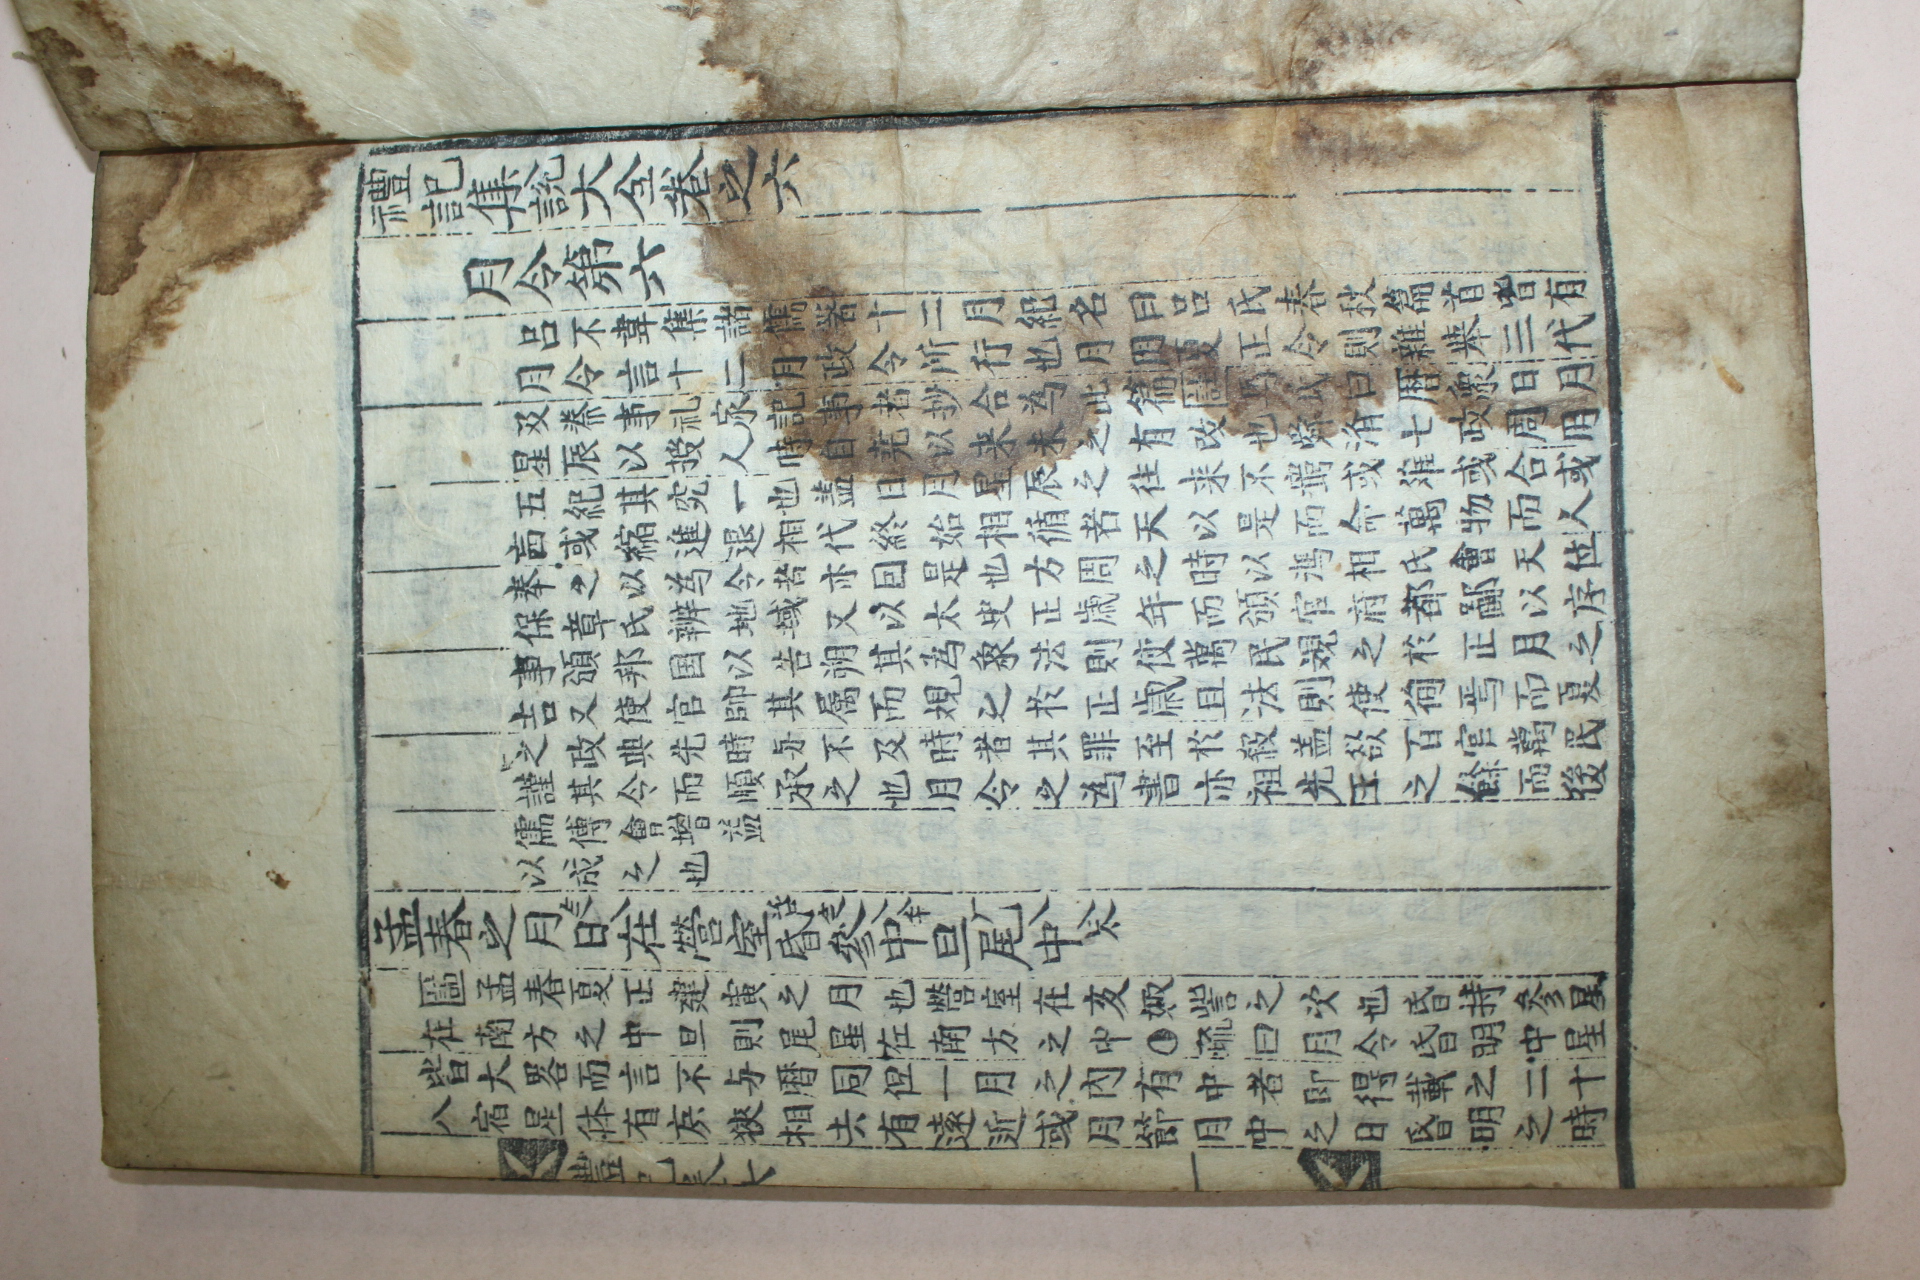 禮記集說大全卷之六
月令第六
呂不韋集諸儒著十二月紀名曰呂氏春秋篇首皆有
月令言十二月政令所行也月用夏正令則雜舉三代
及秦事礼家記事者抄合為此篇馬氏曰曆象日月
星辰以授人時自堯以来未之有改也舜済七政周用
五紀其究一也盖日月星辰之往来不窮或離或合或
盲或縮進退相代終始相循者天以是而命萬物而人
奉之以為令者亦因是也方周之時以馮相氏會天位
保章氏辨地域又以太史正歲年而頒官府都鄙以序
事頒邦国以告朔其為象法則使萬民覌之於正月之
吉又使官帥其属而覌之於正歲且法則使徇焉而夏
之政典先時与不及時者其罪至於殺盖欲百官萬民
謹其令而順承之也月令之為書亦祖先王之餘而後
儒傅會增益
以成之也
孟春之月日在營室昏參中旦尾中
孟春夏正建寅之月也營室在亥娵訾之次也昏時參星
在南方之中旦則尾星在南方之中疏曰月令昏明中星
皆大畧而言不与曆同但一月之內有中者即得載之二十
八宿星体有广狹相去有遠近或月節月中之日昏明之時
禮記卷六